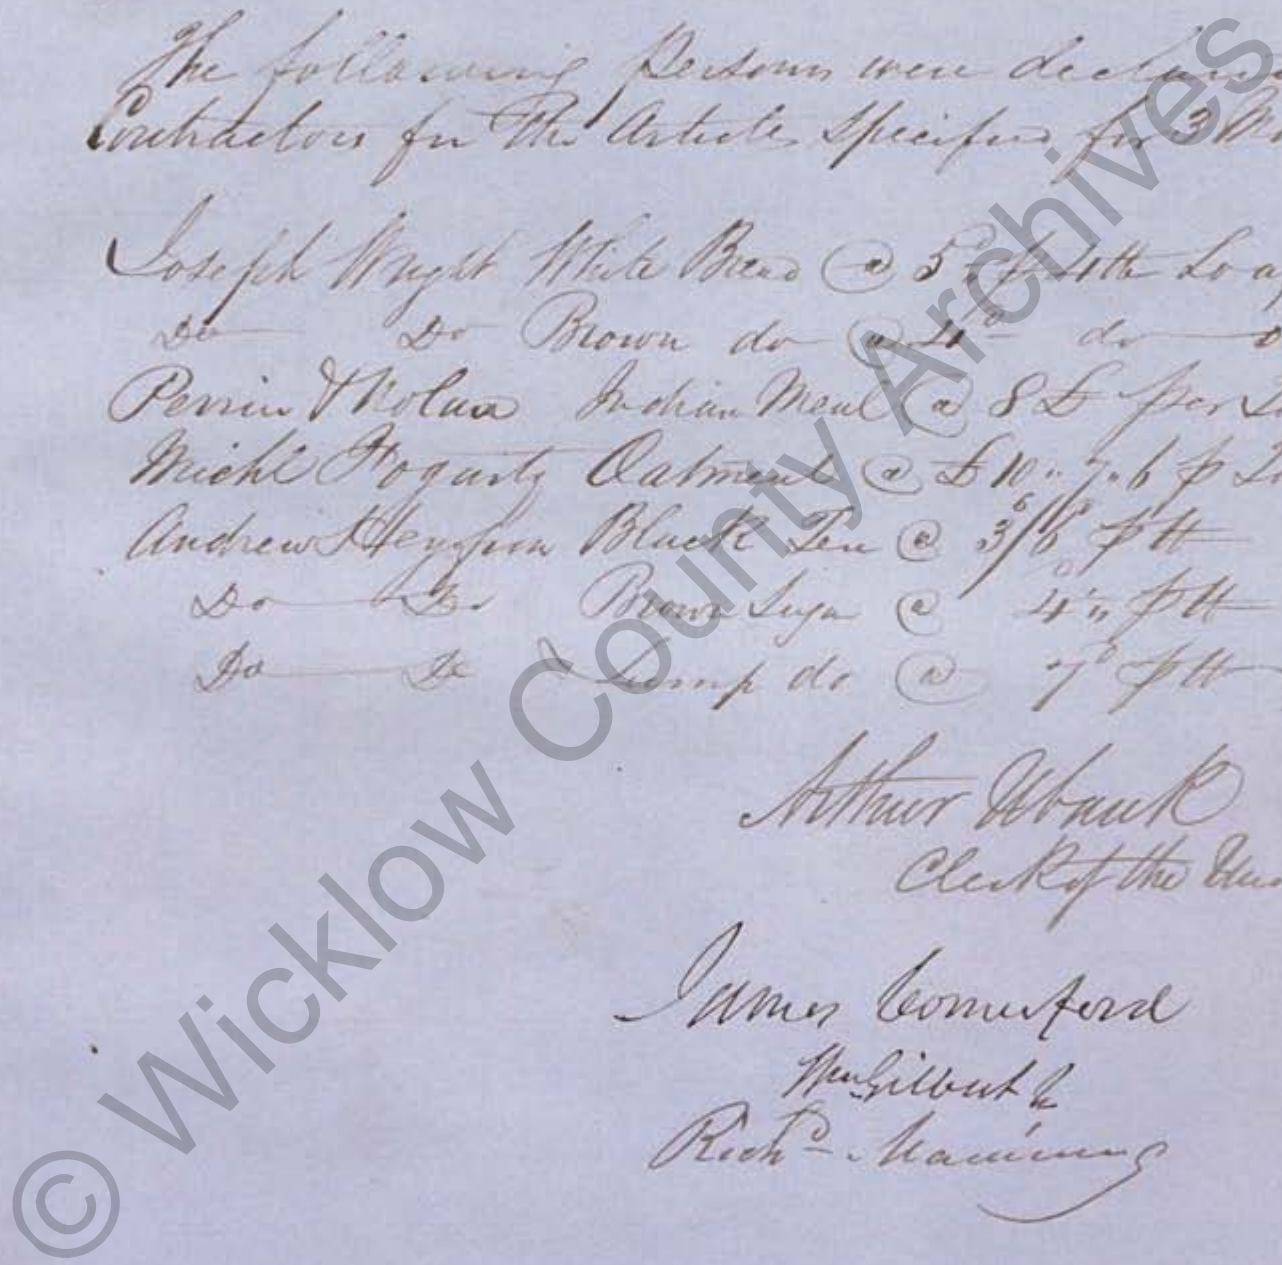 The following Persons were declared
Contractors for the Articles specified for 3 Mo
Joseph Wright White Bread @ 5d p 4 lb Loaf
Do Do Brown do @ 4d do
Perrin & Nolan Indian Meal @ 8 £ per
Michl Fogarty Oatmeal @ £10 " 7 " 6 p
Andrew Black Tea @ 3s/6d p lb
Do Do Brown Sugar @ 4d " p lb
Do Do Lump do @ 7d p lb
Arthur Ubank
Clerk of the
James Comerford
Wm Gilbert
Richd Manning
© Wicklow County Archives